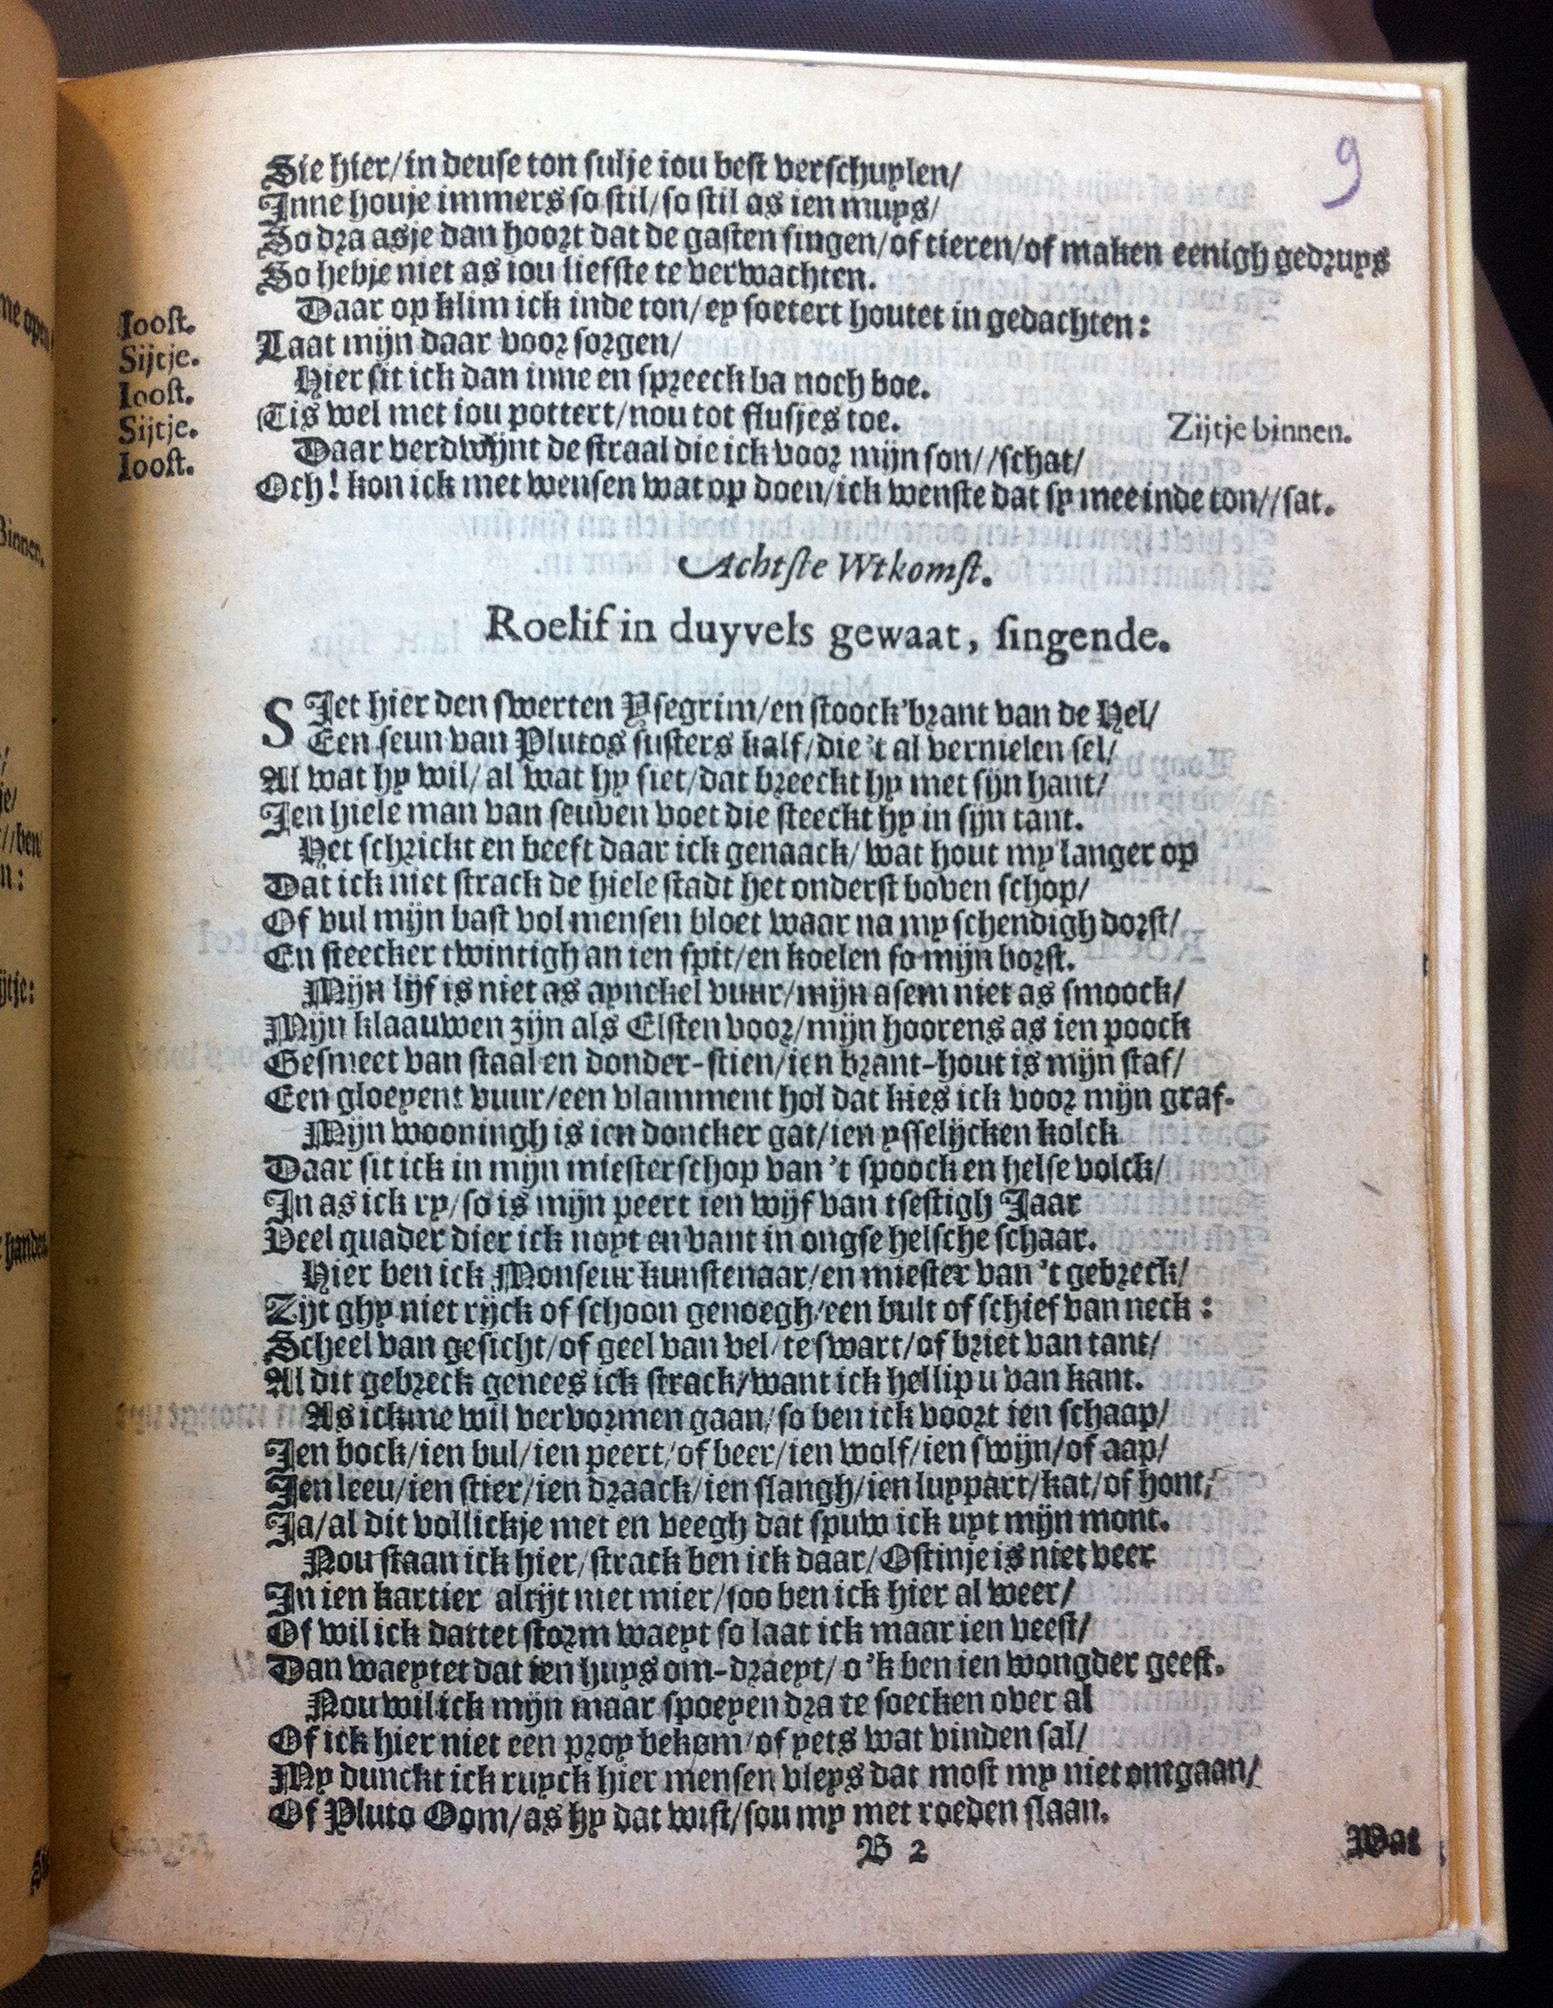 9
Sie hier/in deuse ton sulje iou best verschuylen/
Inne houje immers so stil/so stil as ien muys/
So dra asje dan hoort dat de gasten singen/of tieren/of maken eenigh gedruys
So hebje niet as iou liefste te verwachten.
Joost. Daar op klim ick inde ton/ey soetert houtet in gedachten:
Sijtje. Laat mijn daar voor sorgen/
Joost. Hier sit ick dan inne en spreeck ba noch boe.
Sijtje. Tis wel met iou pottert/nou tot flusjes toe. Zijtje binnen.
Joost. Daar verdwijnt de straal die ick voor mijn son//schat/
Och! kon ick met wensen wat op doen/ick wenste dat sy mee inde ton//sat.
Achtste Wtkomst.
Roelif in duyvels gewaat, singende.
SIet hier den swerten Ysegrim/en stoock'brant van de Hel/
Een seun van Plutos susters kalf/die 't al vernielen sel/
Al wat hy wil/al wat hy siet/dat breeckt hy met sijn hant/
Ien hiele man van seuven voet die steeckt hy in sijn tant.
Het schrickt en beeft daar ick genaack/wat hout my langer op
Dat ick niet strack de hiele stadt het onderst boven schop/
Of vul mijn bast vol mensen bloet waar na my schendigh dorst/
En steecker twintigh an ien spit/en koelen so mijn borst.
Mijn lijf is niet as aynckel vuur/mijn asem niet as smoock/
Mijn klaauwen zijn als Elsten voor/mijn hoorens as ien poock
Gesmeet van staal en donder-stien/ien brant-hout is mijn staf/
Een gloeyent vuur/een vlamment hol dat kies ick voor mijn graf.
Mijn wooningh is ien doncker gat/ien ysselijcken kolck
Daar sit ick in mijn miesterschop van 't spoock en helse volck/
In as ick ry/so is mijn peert ien wijf van tsestigh Jaar
Veel quader dier ick noyt en vant in ongse helsche schaar.
Hier ben ick Monseur kunstenaar/en miester van 't gebreck/
Zijt ghy niet rijck of schoon genoegh/een bult of schief van neck:
Scheel van gesicht/of geel van vel/te swart/of briet van tant/
Al dit gebreck genees ick strack/want ick hellip u van kant.
As ickme wil vervormen gaan/so ben ick voort ien schaap/
Ien bock/ien bul/ien peert/of beer/ien wolf/ien swijn/of aap/
Ien leeu/ien stier/ien draack/ien slangh/ien luypart/kat/of hont/
Ja/al dit vollickje met en veegh dat spuw ick uyt mijn mont.
Nou staan ick hier/strack ben ick daar/Ostinje is niet veer
In ien kartier altijt niet mier/soo ben ick hier al weer/
Of wil ick dattet storm waeyt so laat ick maar ien veest/
Dan waeytet dat ien huys om-draeyt/o 'k ben ien wongder geest.
Nou wil ick mijn maar spoeyen dra te soecken over al
Of ick hier niet een proy bekom/of yets wat vinden sal/
My dunckt ick ruyck hier mensen vleys dat most my niet omgaan/
Of Pluto Oom/as hy dat wist/sou my met roeden slaan.
B 2 Wat